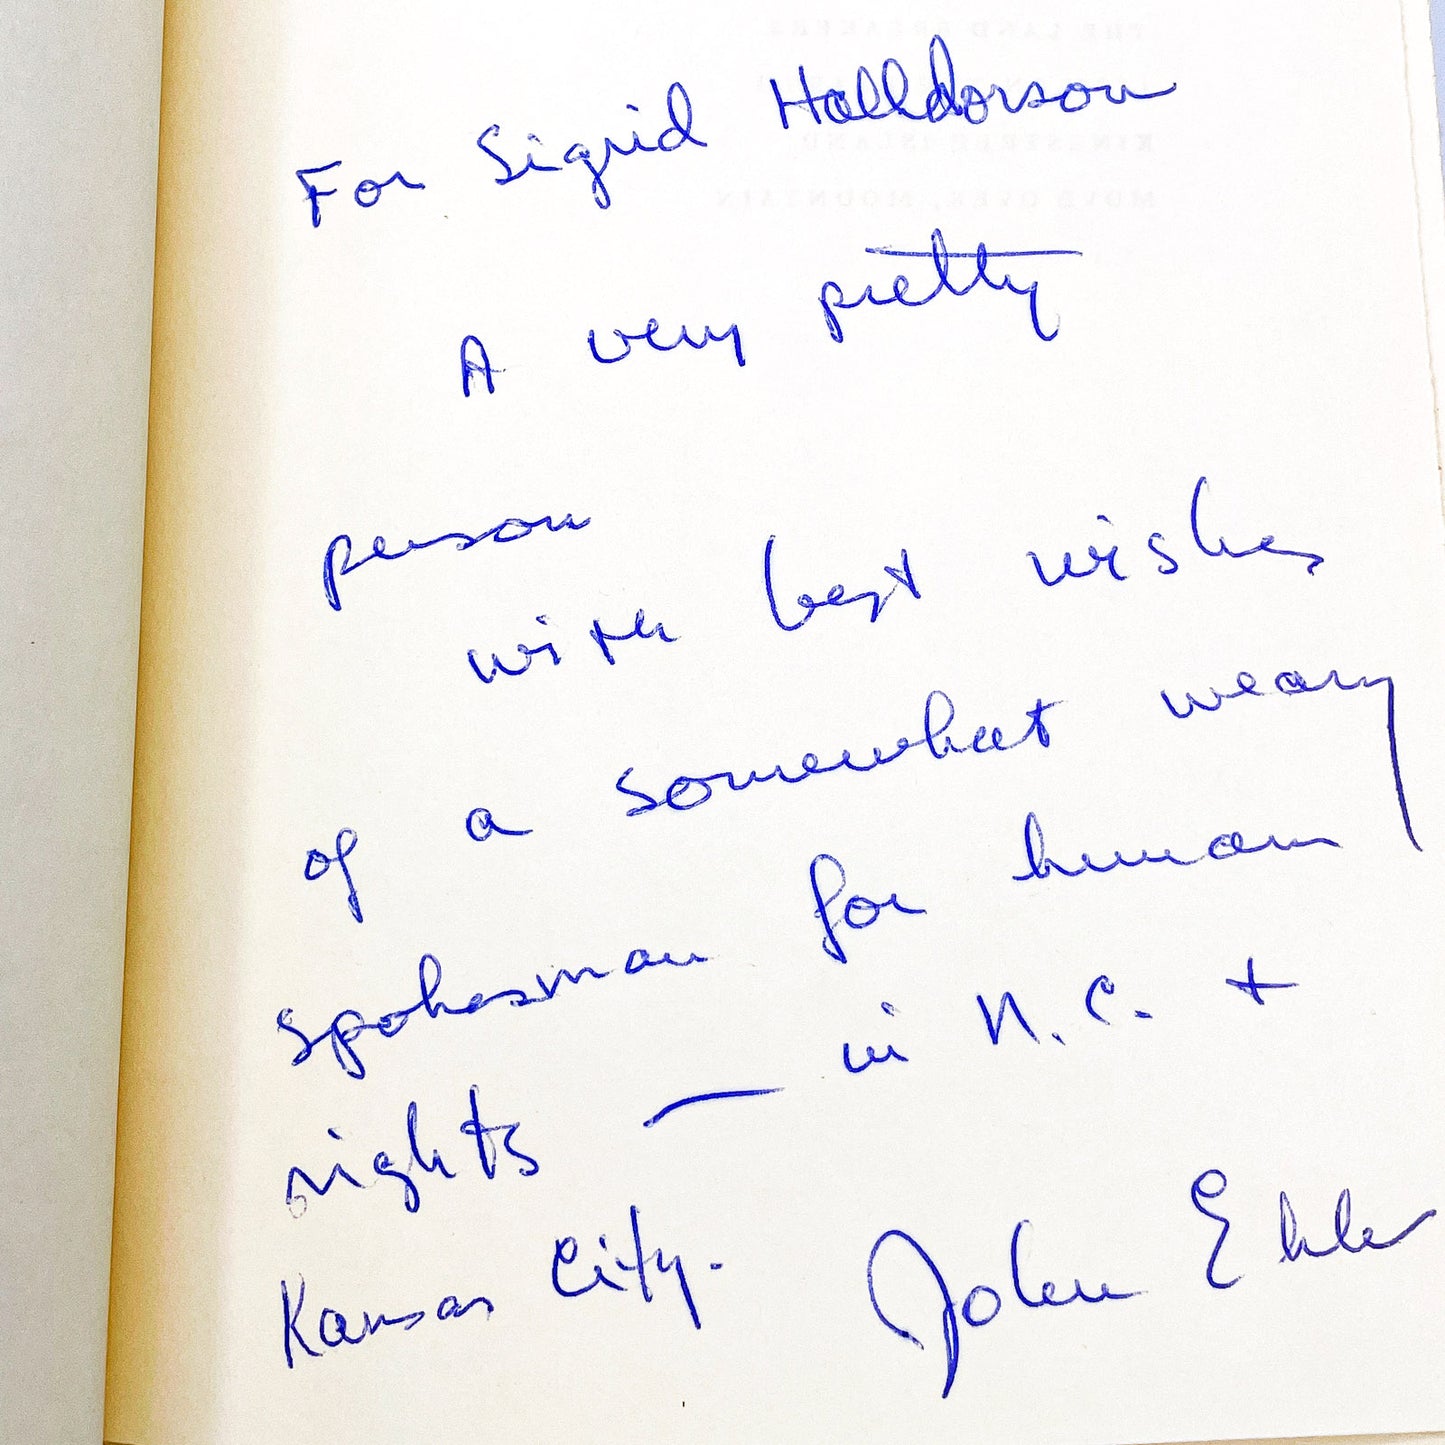 For Sigrid Halldorson
A very pretty
person
with best wishes
of a somewhat weary
spokesman for human
rights — in N.C. +
Kansas City.
John Ehle
THE LAND BREAKERS
KINGSTREE ISLAND
MOVE OVER, MOUNTAIN